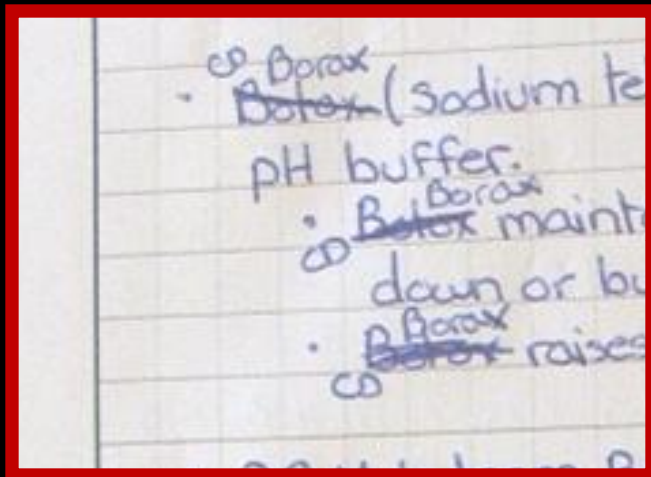 CD Borax
• Botox (sodium te
pH buffer.
Borax
• Botox maint
CD
down or bu
Borax
• Botox raises
CD